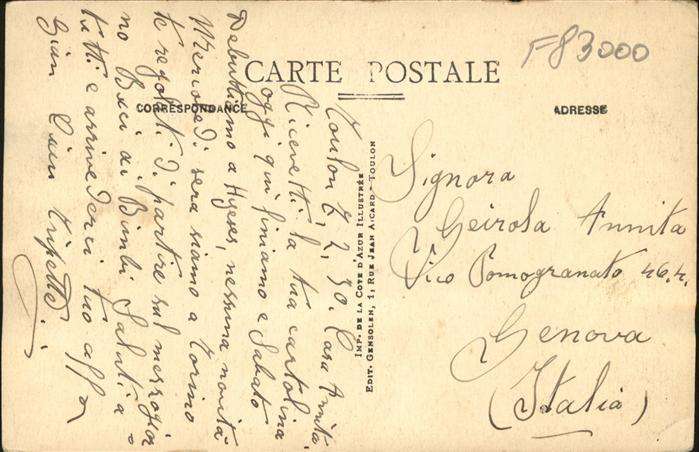 F83000
CARTE POSTALE
CORRESPONDANCE
ADRESSE
Toulon 6, 2, 30. Cara Annita.
Ricevetti la tua cartolina
oggi qui finiamo e Sabato
Debuttiamo a Hyeres, nessuna novità
Mercoledi sera siamo a Torino
te regolati di partire sul merrogior
no Baci ai Bimbi Saluti a
tutti e arrivederci tuo aff
Gian
IMP. DE LA COTE D'AZUR ILLUSTRÉE
EDIT. GENSOLEN, 1, RUE JEAN AICARD - TOULON
Signora
Geirola Annita
Vico Pomogranato 46.4.
Genova
(Italia)